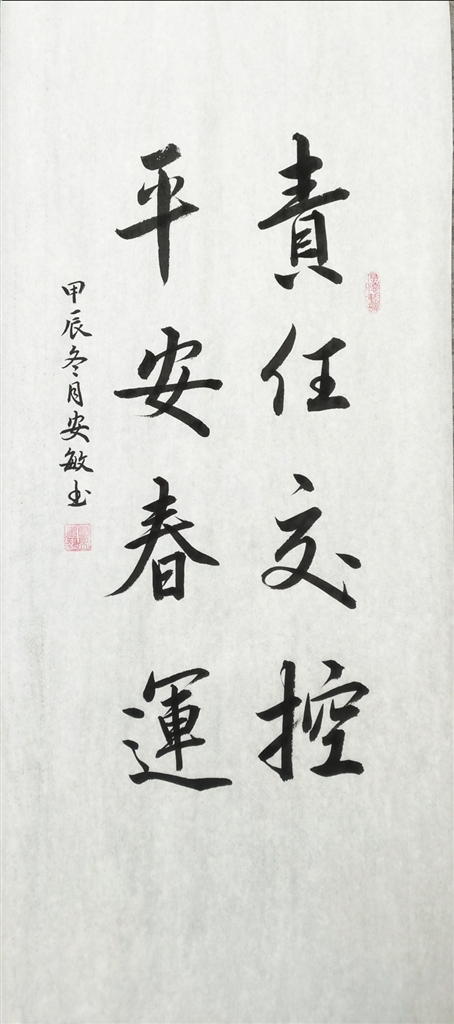 責任交控
平安春運
甲辰冬月安敏书